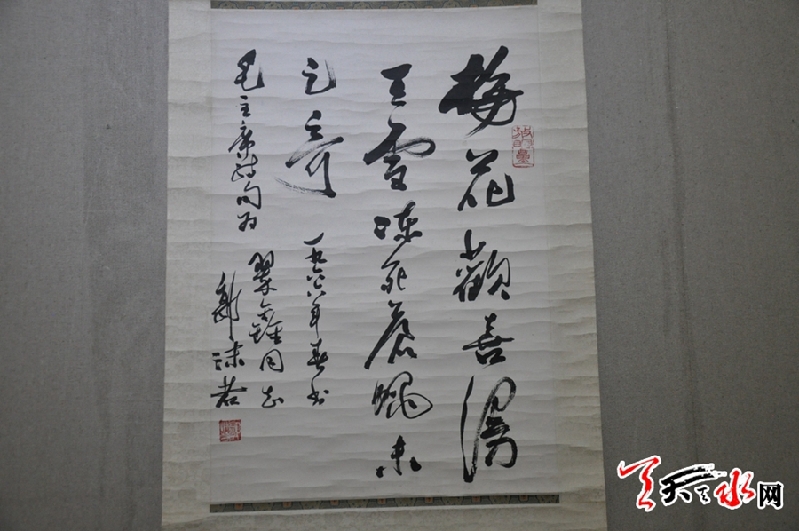 梅花欢喜漫
天雪冻死苍蝇未
足奇
一九六六年春书
毛主席诗句为
同志
郭沫若
天天天水网